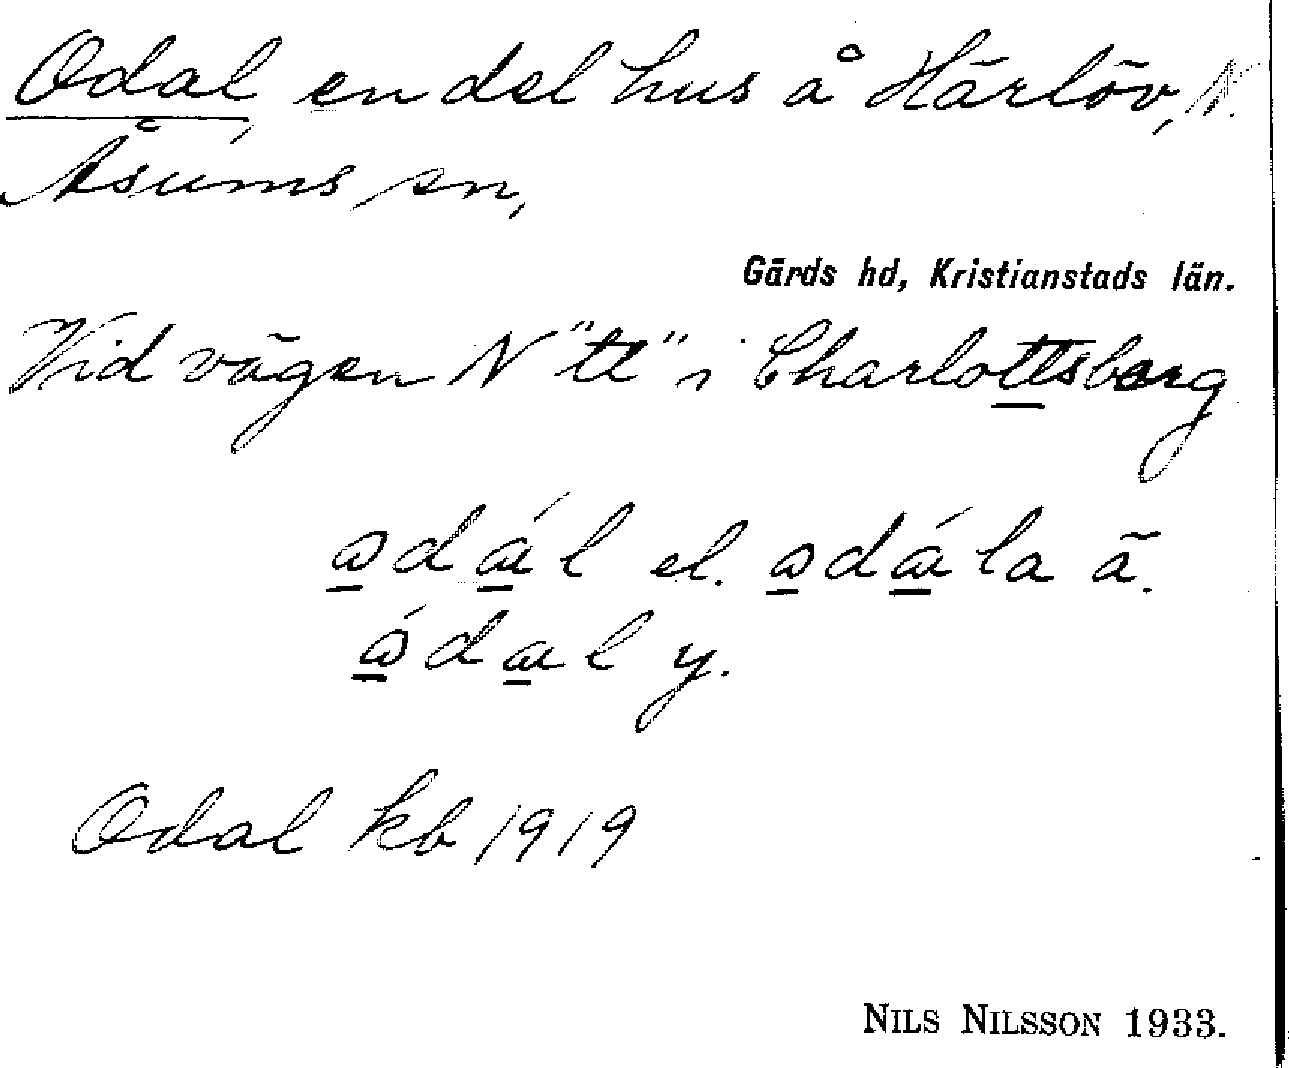 Odal, en del hus å Härlöv, N.
Åsums sn,
Gärds hd, Kristianstads län.
Vid vägen N "tt" i Charlottsborg
ɷdáɩl el. ɷdáɩla ä.
ɷ́daɩl y.
Odal kb 1919
NILS NILSSON 1933.